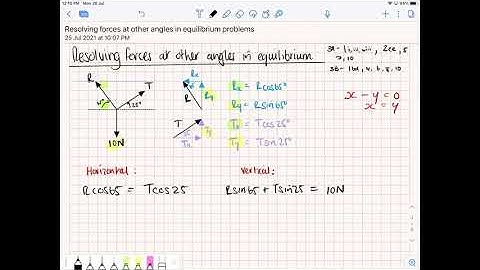 12:10 PM Mon 26 Jul
Resolving forces at other angles in equilibrium problems
25 Jul 2021 at 10:07 PM
Resolving forces at other angles in equilibrium
R T
65° 25°
10N
Rx
R Ry
T Ty
Tx
Rx = Rcos65°
Ry = Rsin65°
Tx = Tcos25°
Ty = Tsin25°
x - y = 0
x = y
Horizontal:
Rcos65 = Tcos25
Vertical:
Rsin65 + Tsin25 = 10N